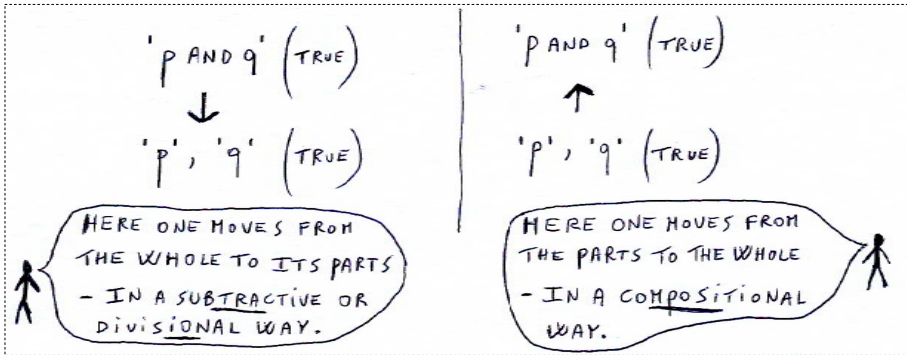 'p AND q' (TRUE)
↓
'p', 'q' (TRUE)
HERE ONE MOVES FROM
THE WHOLE TO ITS PARTS
- IN A SUBTRACTIVE OR
DIVISIONAL WAY.
'p AND q' (TRUE)
↑
'p', 'q' (TRUE)
HERE ONE MOVES FROM
THE PARTS TO THE WHOLE
- IN A COMPOSITIONAL
WAY.